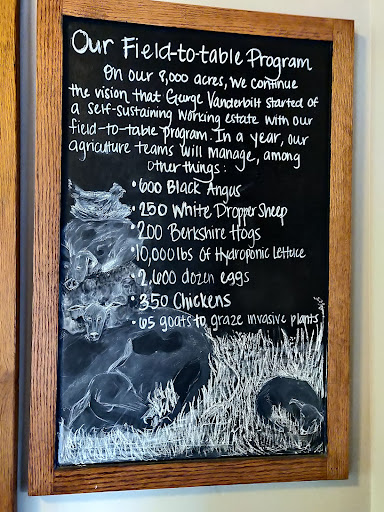 Our Field-to-table Program
On our 8,000 acres, we continue
the vision that George Vanderbilt started of
a self-sustaining working estate with our
field-to-table program. In a year, our
agriculture teams will manage, among
other things:
• 600 Black Angus
• 250 White Dropper Sheep
• 200 Berkshire Hogs
• 10,000 lbs of Hydroponic Lettuce
• 2,600 dozen eggs
• 350 Chickens
• 65 goats to graze invasive plants